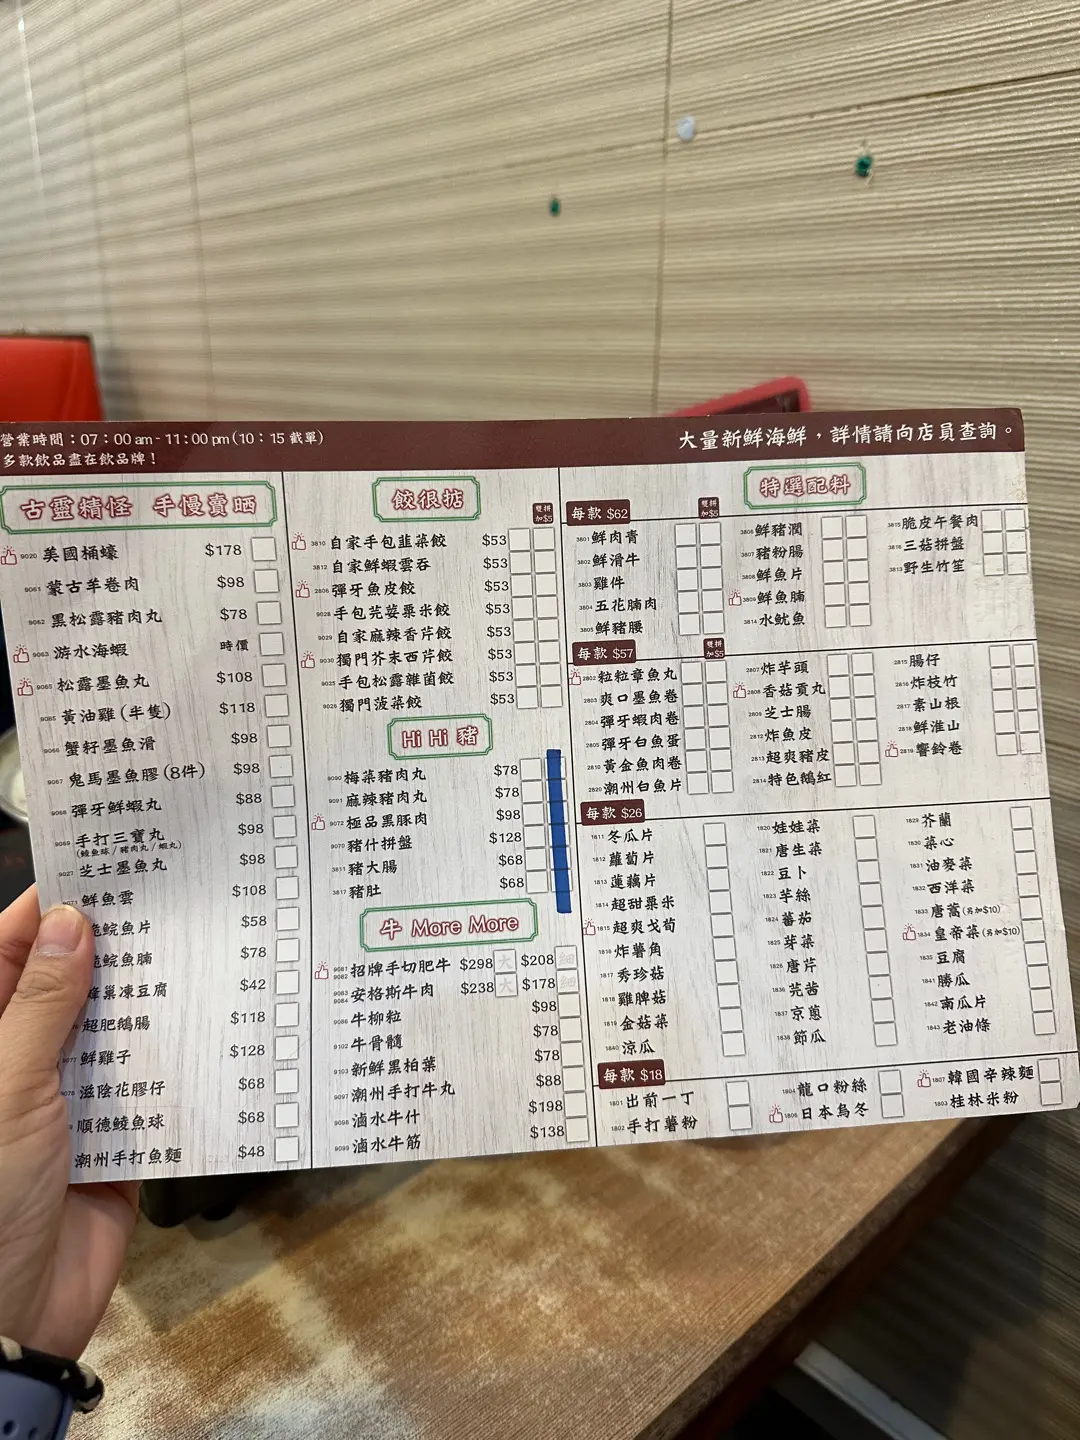 營業時間：07：00 am - 11：00 pm (10：15 截單)
多款飲品盡在飲品牌！
大量新鮮海鮮，詳情請向店員查詢。
古靈精怪 手慢賣晒
9020 美國桶蠔 $178
9061 蒙古羊卷肉 $98
9062 黑松露豬肉丸 $78
9063 游水海蝦 時價
9065 松露墨魚丸 $108
9085 黃油雞 (半隻) $118
9066 蟹籽墨魚滑 $98
9067 鬼馬墨魚膠 (8件) $98
9068 彈牙鮮蝦丸 $88
9069 手打三寶丸 $98
(鯪魚球／豬肉丸／蝦丸)
9027 芝士墨魚丸 $98
鮮魚雲 $108
脆鯇魚片 $58
脆鯇魚腩 $78
蜂巢凍豆腐 $42
超肥鵝腸 $118
9077 鮮雞子 $128
9078 滋陰花膠仔 $68
順德鯪魚球 $68
潮州手打魚麵 $48
餃很掂
雙拼
加$5
3810 自家手包韮菜餃 $53
3812 自家鮮蝦雲吞 $53
2806 彈牙魚皮餃 $53
9028 手包芫荽粟米餃 $53
9029 自家麻辣香芹餃 $53
9030 獨門芥末西芹餃 $53
9025 手包松露雜菌餃 $53
9026 獨門菠菜餃 $53
Hi Hi 豬
9090 梅菜豬肉丸 $78
9091 麻辣豬肉丸 $78
9072 極品黑豚肉 $98
9070 豬什拼盤 $128
3811 豬大腸 $68
3817 豬肚 $68
牛 More More
9081 9082 招牌手切肥牛 $298 大 $208 細
9083 9084 安格斯牛肉 $238 大 $178 細
9086 牛柳粒 $98
9102 牛骨髓 $78
9103 新鮮黑柏葉 $78
9097 潮州手打牛丸 $88
9098 滷水牛什 $198
9099 滷水牛筋 $138
特選配料
每款 $62
雙拼
加$5
3801 鮮肉青
3802 鮮滑牛
3803 雞件
3804 五花腩肉
3805 鮮豬腰
3806 鮮豬潤
3807 豬粉腸
3808 鮮魚片
3809 鮮魚腩
3814 水魷魚
3815 脆皮午餐肉
3816 三菇拼盤
3813 野生竹笙
每款 $57
雙拼
加$5
2802 粒粒章魚丸
2803 爽口墨魚卷
2804 彈牙蝦肉卷
2805 彈牙白魚蛋
2810 黃金魚肉卷
2820 潮州白魚片
2807 炸芋頭
2808 香菇貢丸
2809 芝士腸
2812 炸魚皮
2813 超爽豬皮
2814 特色鵝紅
2815 腸仔
2816 炸枝竹
2817 素山根
2818 鮮淮山
2819 響鈴卷
每款 $26
1811 冬瓜片
1812 蘿蔔片
1813 蓮藕片
1814 超甜粟米
1815 超爽戈筍
1816 炸薯角
1817 秀珍菇
1818 雞脾菇
1819 金菇菜
1840 涼瓜
1820 娃娃菜
1821 唐生菜
1822 豆卜
1823 芋絲
1824 蕃茄
1825 芽菜
1826 唐芹
1836 芫茜
1837 京蔥
1838 節瓜
1829 芥蘭
1830 菜心
1831 油麥菜
1832 西洋菜
1833 唐蒿 (另加$10)
1834 皇帝菜 (另加$10)
1835 豆腐
1841 勝瓜
1842 南瓜片
1843 老油條
每款 $18
1801 出前一丁
1802 手打薯粉
1804 龍口粉絲
1806 日本烏冬
1807 韓國辛辣麵
1803 桂林米粉